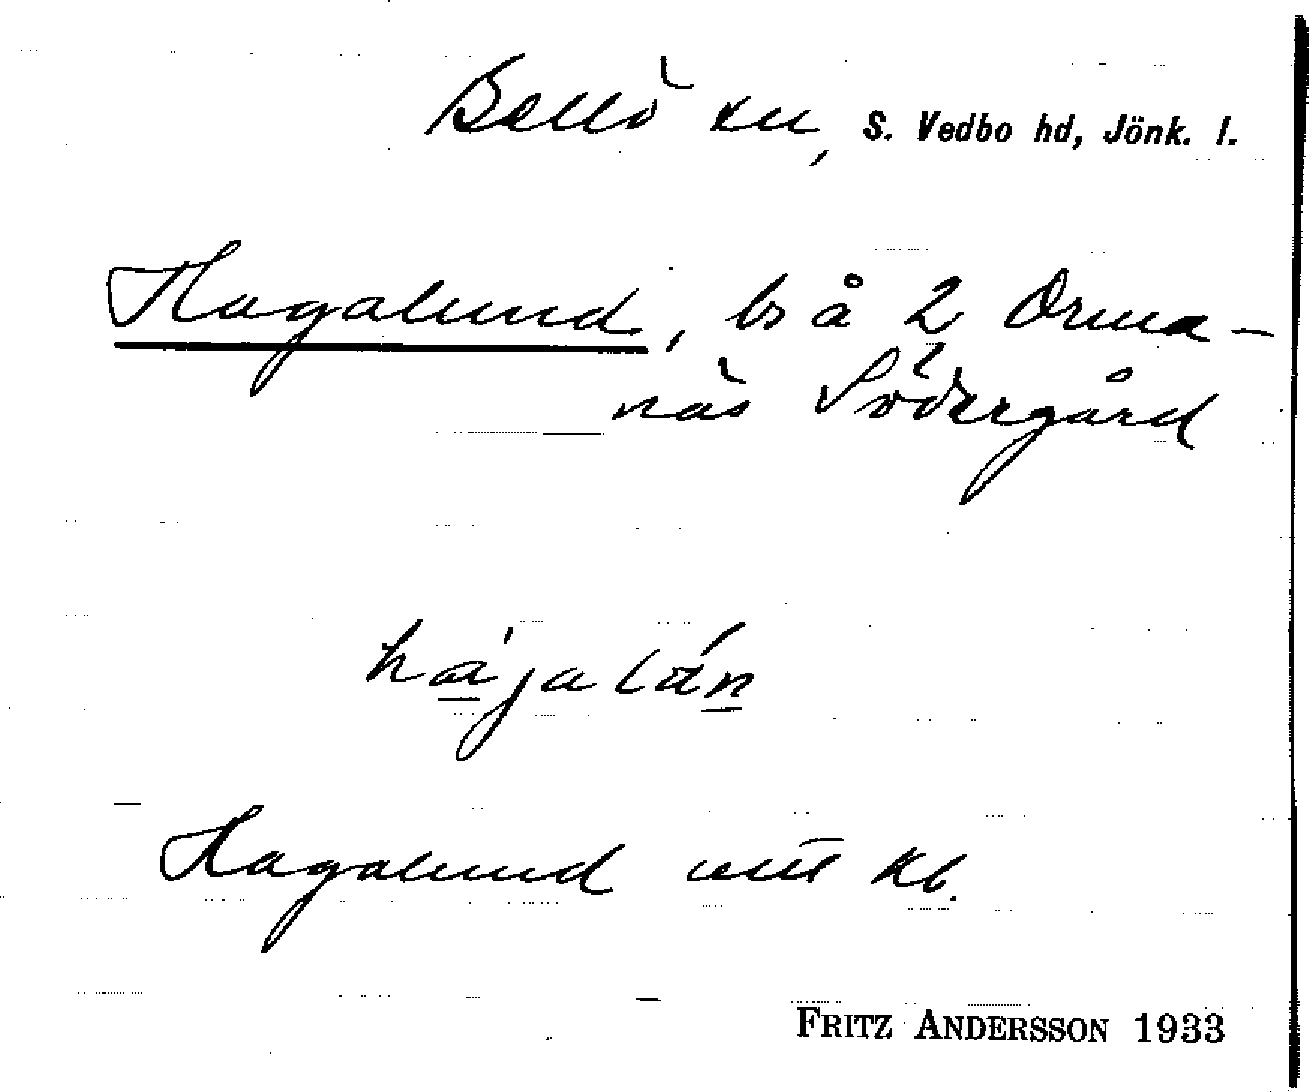 Bellö sn, S. Vedbo hd, Jönk. l.
Hagalund, bs å 2 Orma-
näs Södergård
Hagalund utt kb.
FRITZ ANDERSSON 1933